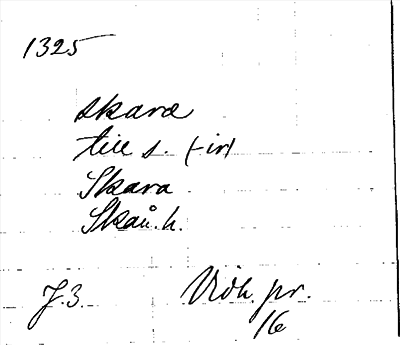 1325
skaræ
till s. (-in)
Skara
Skån. h.
J. 3.
Vidh pr.
16